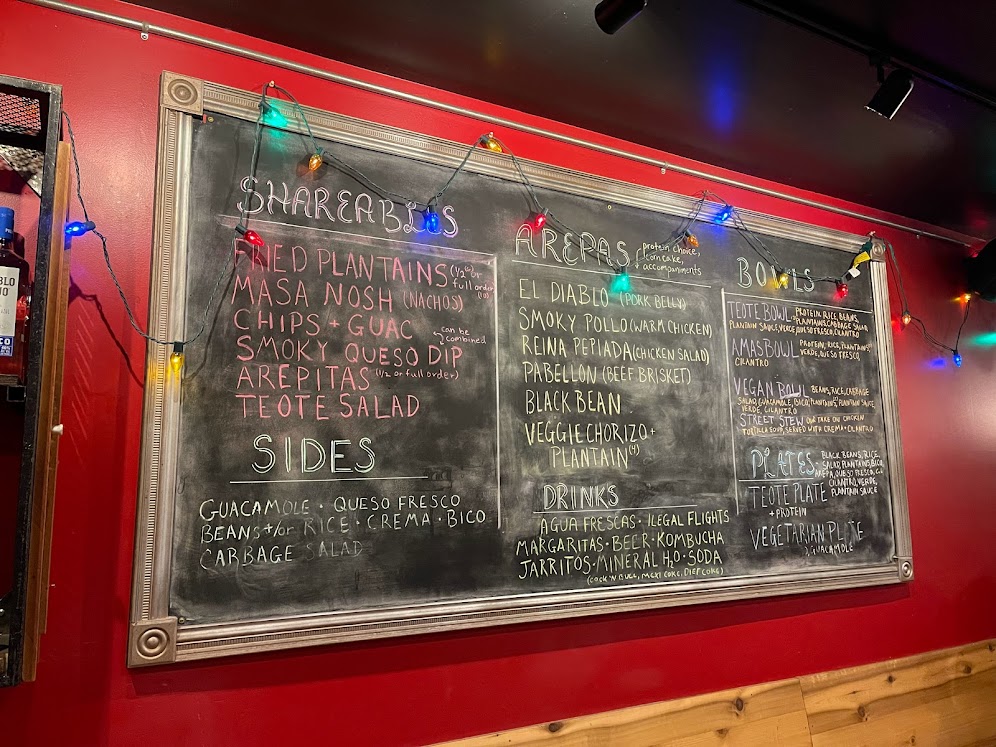 SHAREABLES
FRIED PLANTAINS (1/2 or
full order
MASA NOSH (NACHOS)
CHIPS + GUAC
can be
combined
SMOKY QUESO DIP
AREPITAS (1/2 or full order)
TEOTE SALAD
SIDES
GUACAMOLE • QUESO FRESCO
BEANS +/or RICE • CREMA • BICO
CABBAGE SALAD
AREPAS
protein choice,
corn cake,
accompaniments
EL DIABLO (PORK BELLY)
SMOKY POLLO (WARM CHICKEN)
REINA PEPIADA (CHICKEN SALAD)
PABELLON (BEEF BRISKET)
BLACK BEAN
VEGGIE CHORIZO +
PLANTAIN (4)
DRINKS
AGUA FRESCAS • ILEGAL FLIGHTS
MARGARITAS • BEER • KOMBUCHA
JARRITOS • MINERAL H2O • SODA
(COCK 'N BULL, MEXI COKE, DIET COKE)
BOWLS
TEOTE BOWL PROTEIN, RICE, BEANS,
PLANTAINS, CABBAGE SALAD
PLANTAIN SAUCE, VERDE, QUESO FRESCO, CILANTRO
AMAS BOWL PROTEIN, RICE, PLANTAINS
VERDE, QUESO FRESCO,
CILANTRO
VEGAN BOWL BEANS, RICE, CABBAGE
SALAD, GUACAMOLE, BICO, PLANTAINS, PLANTAIN SAUCE
VERDE, CILANTRO
STREET STEW OUR TAKE ON CHICKEN
TORTILLA SOUP, SERVED WITH CREMA + CILANTRO
PLATES • BLACK BEANS, RICE,
SALAD, PLANTAINS, BICO,
AREPA, QUESO FRESCO,
CILANTRO, VERDE,
PLANTAIN SAUCE
TEOTE PLATE
+ PROTEIN
VEGETARIAN PLATE
GUACAMOLE